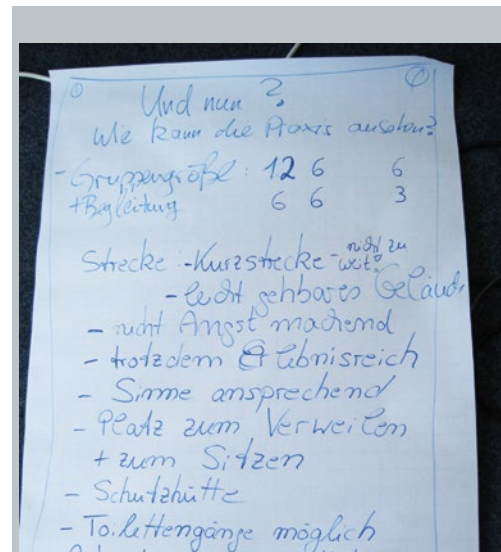 Und nun ?
Wie kann die Praxis aussehen?
- Gruppengröße : 12 6 6
+ Begleitung 6 6 3
Strecke : - Kurzstrecke - nicht zu weit!
- leicht gehbares Gelände
- nicht Angst machend
- trotzdem Erlebnisreich
- Sinne ansprechend
- Platz zum Verweilen
+ zum Sitzen
- Schutzhütte
- Toilettengänge möglich